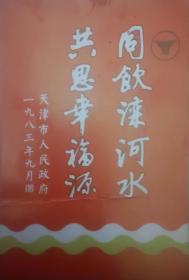 同飲滦河水
共思幸福源
天津市人民政府
一九八三年九月